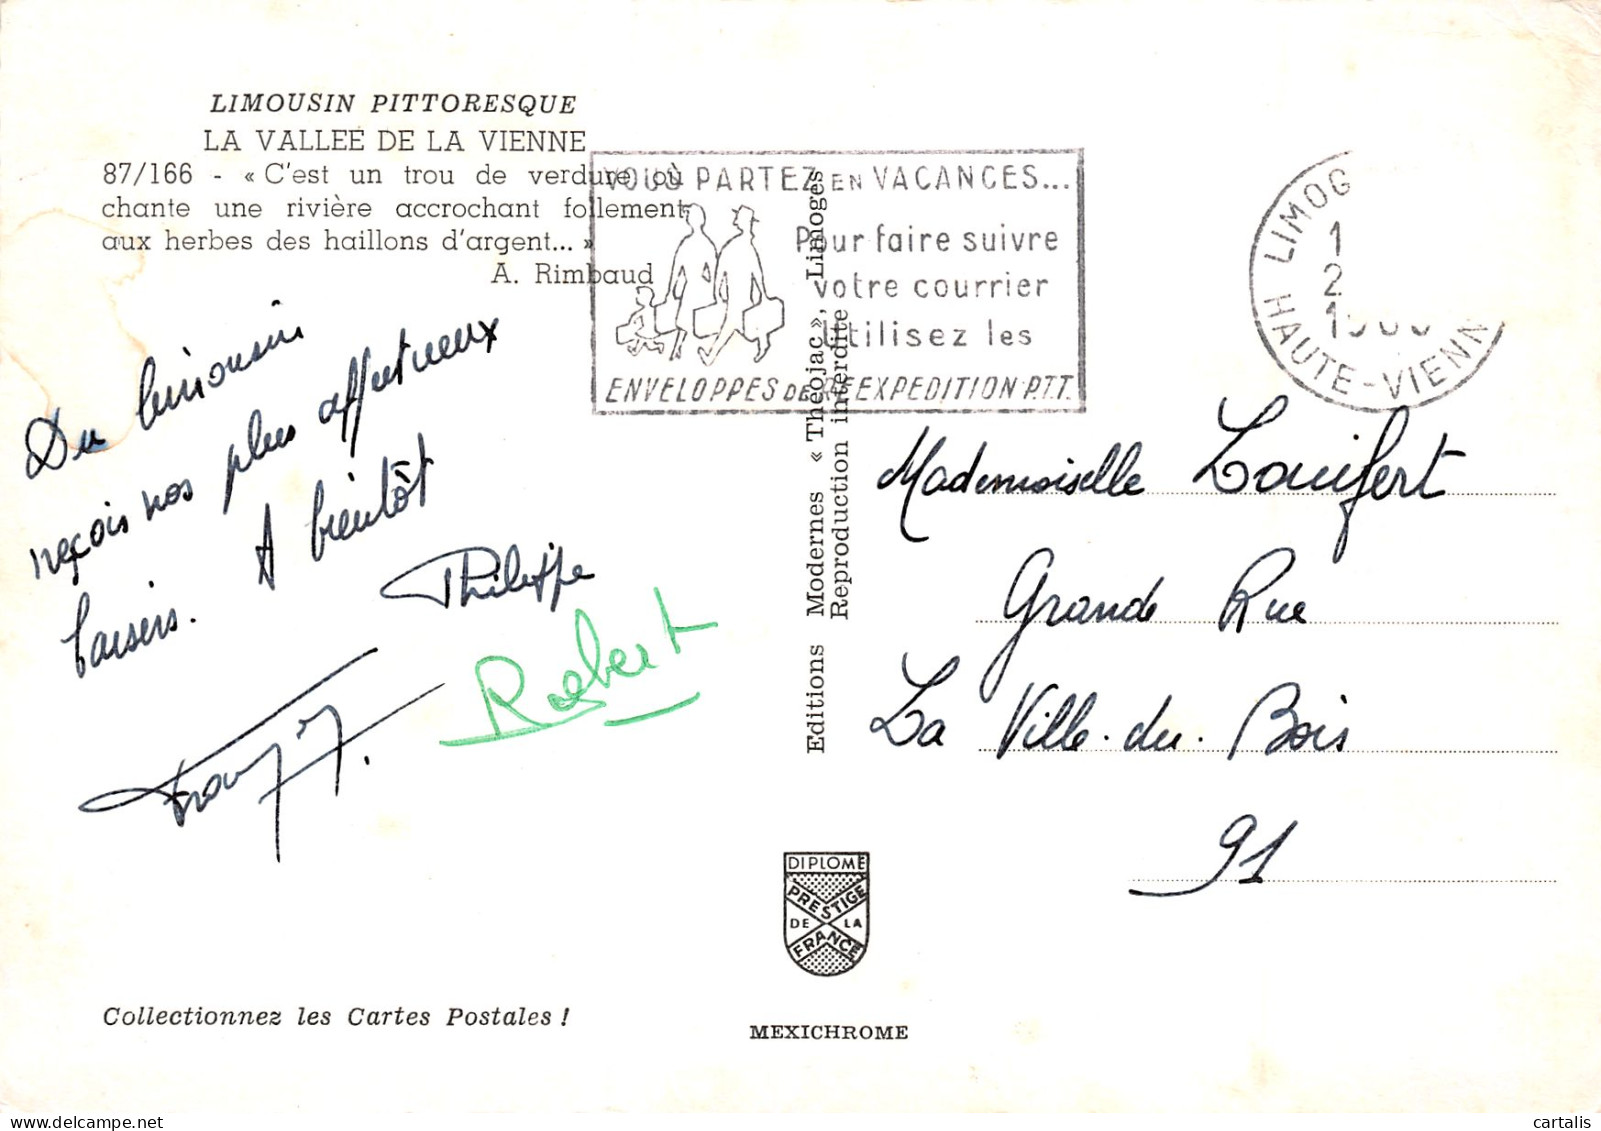 LIMOUSIN PITTORESQUE
LA VALLEÉ DE LA VIENNE
87/166 - « C'est un trou de verdure où
chante une rivière accrochant follement
aux herbes des haillons d'argent... »
A. Rimbaud
VOUS PARTEZ EN VACANCES...
Pour faire suivre
votre courrier
Utilisez les
ENVELOPPES DE REEXPEDITION P.T.T.
LIMOG
HAUTE-VIENN
1
2
Du limousin
reçois nos plus affectueux
baisers. A bientôt
Philippe
Robert
Editions Modernes « Théojac », Limoges
Reproduction interdite
Mademoiselle
Grande Rue
La Ville-du-Bois
91
DIPLOME
PRESTIGE
DE LA
FRANCE
Collectionnez les Cartes Postales !
MEXICHROME
cartalis